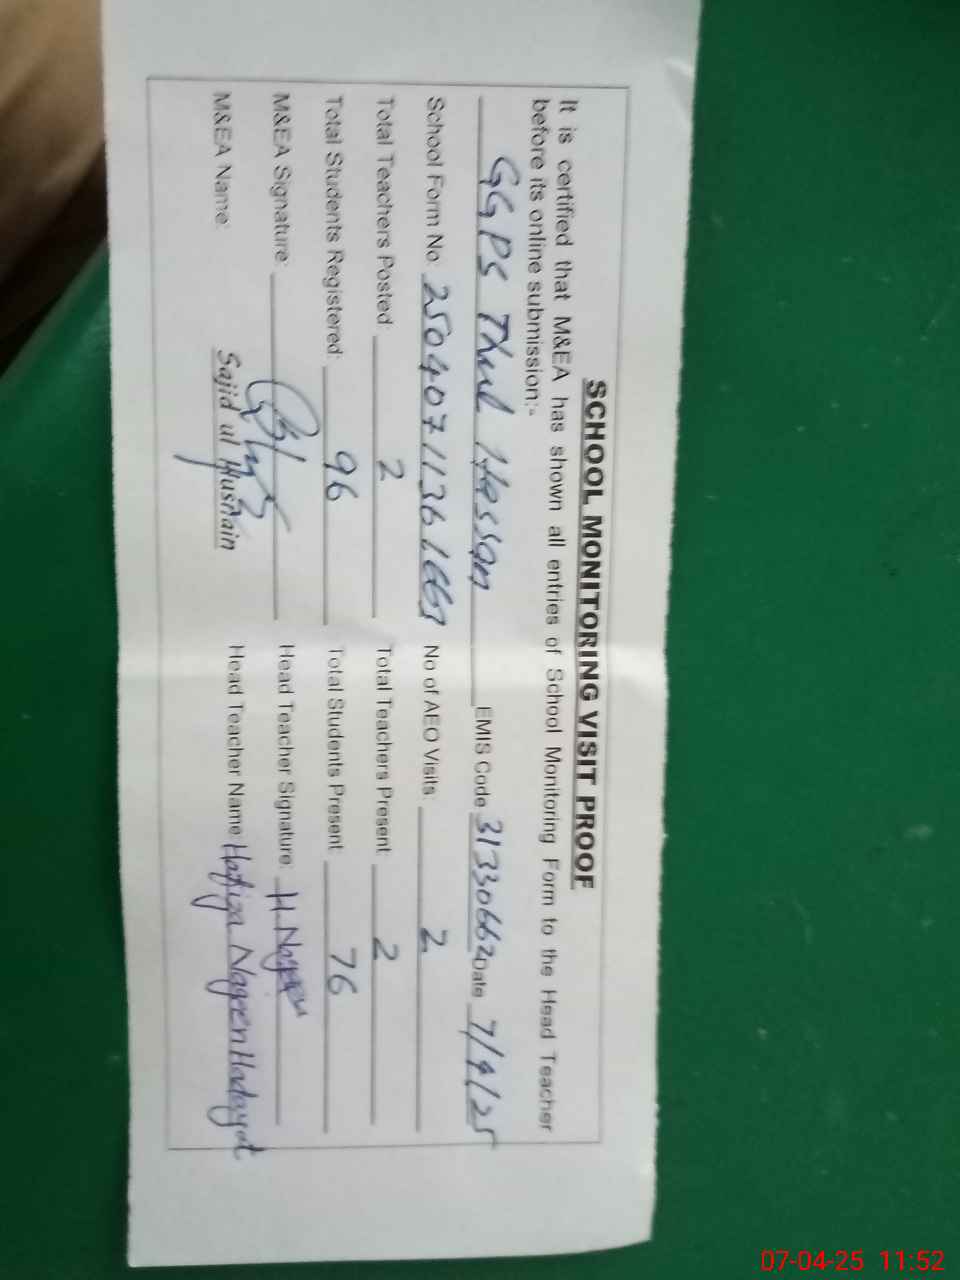 SCHOOL MONITORING VISIT PROOF
It is certified that M&EA has shown all entries of School Monitoring Form to the Head Teacher
before its online submission:-
GGPS Thul Hassan EMIS Code 31330662 Date 7/4/25
School Form No. No of AEO Visits: 2
Total Teachers Posted: 2 Total Teachers Present: 2
Total Students Registered: 96 Total Students Present: 76
M&EA Signature: Head Teacher Signature: H. Nageen
M&EA Name: Sajid ul Husnain Head Teacher Name Hafiza Nageen Hadayat
07-04-25 11:52